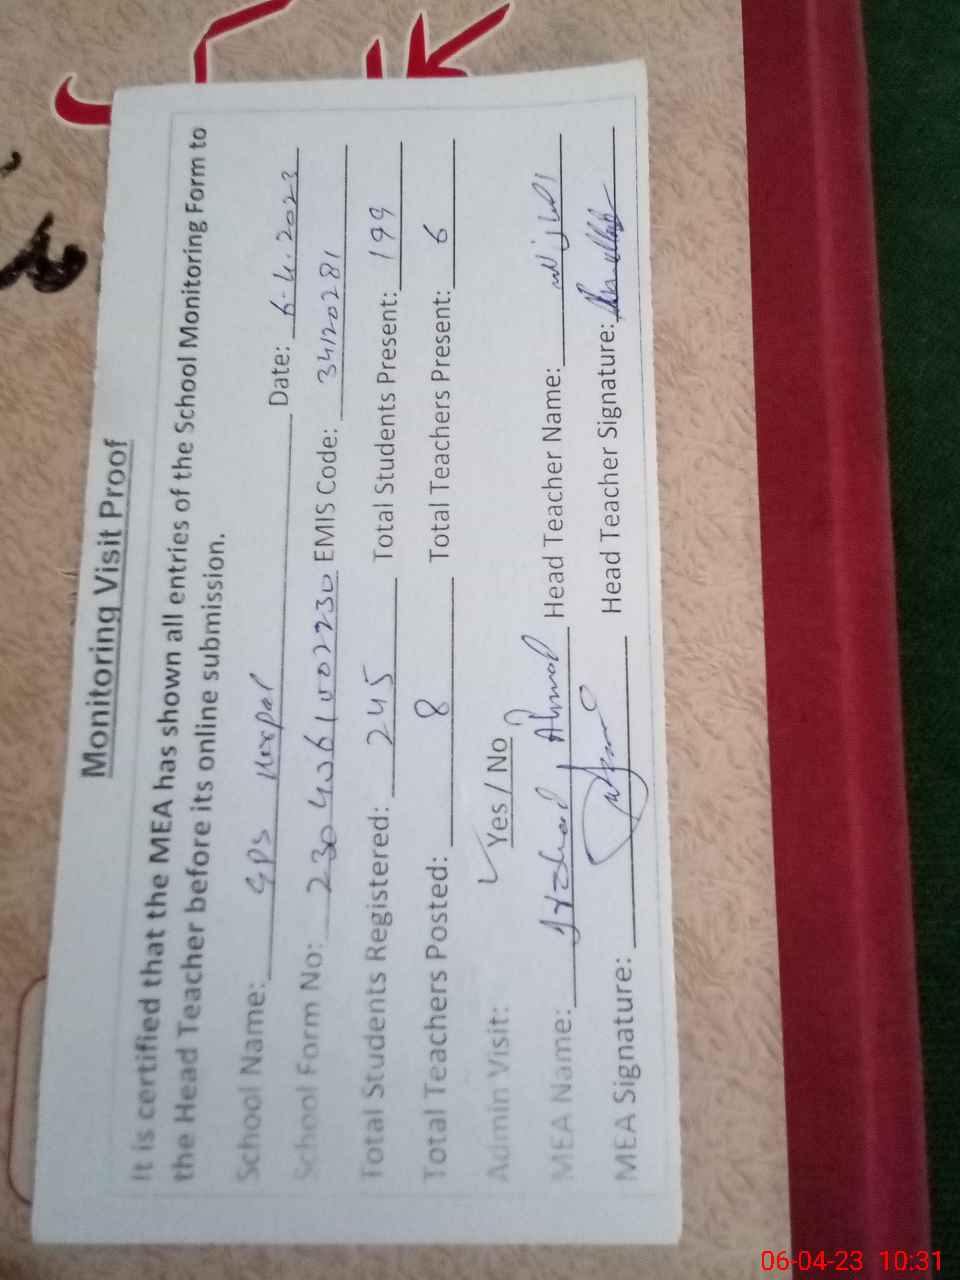 Monitoring Visit Proof
It is certified that the MEA has shown all entries of the School Monitoring Form to
the Head Teacher before its online submission.
School Name: GPS Date: 6-4.2023
School Form No: EMIS Code: 34120281
Total Students Registered: 245 Total Students Present: 199
Total Teachers Posted: 8 Total Teachers Present: 6
Admin Visit: Yes / No
MEA Name: Ahmad Head Teacher Name:
MEA Signature: Head Teacher Signature:
06-04-23 10:31